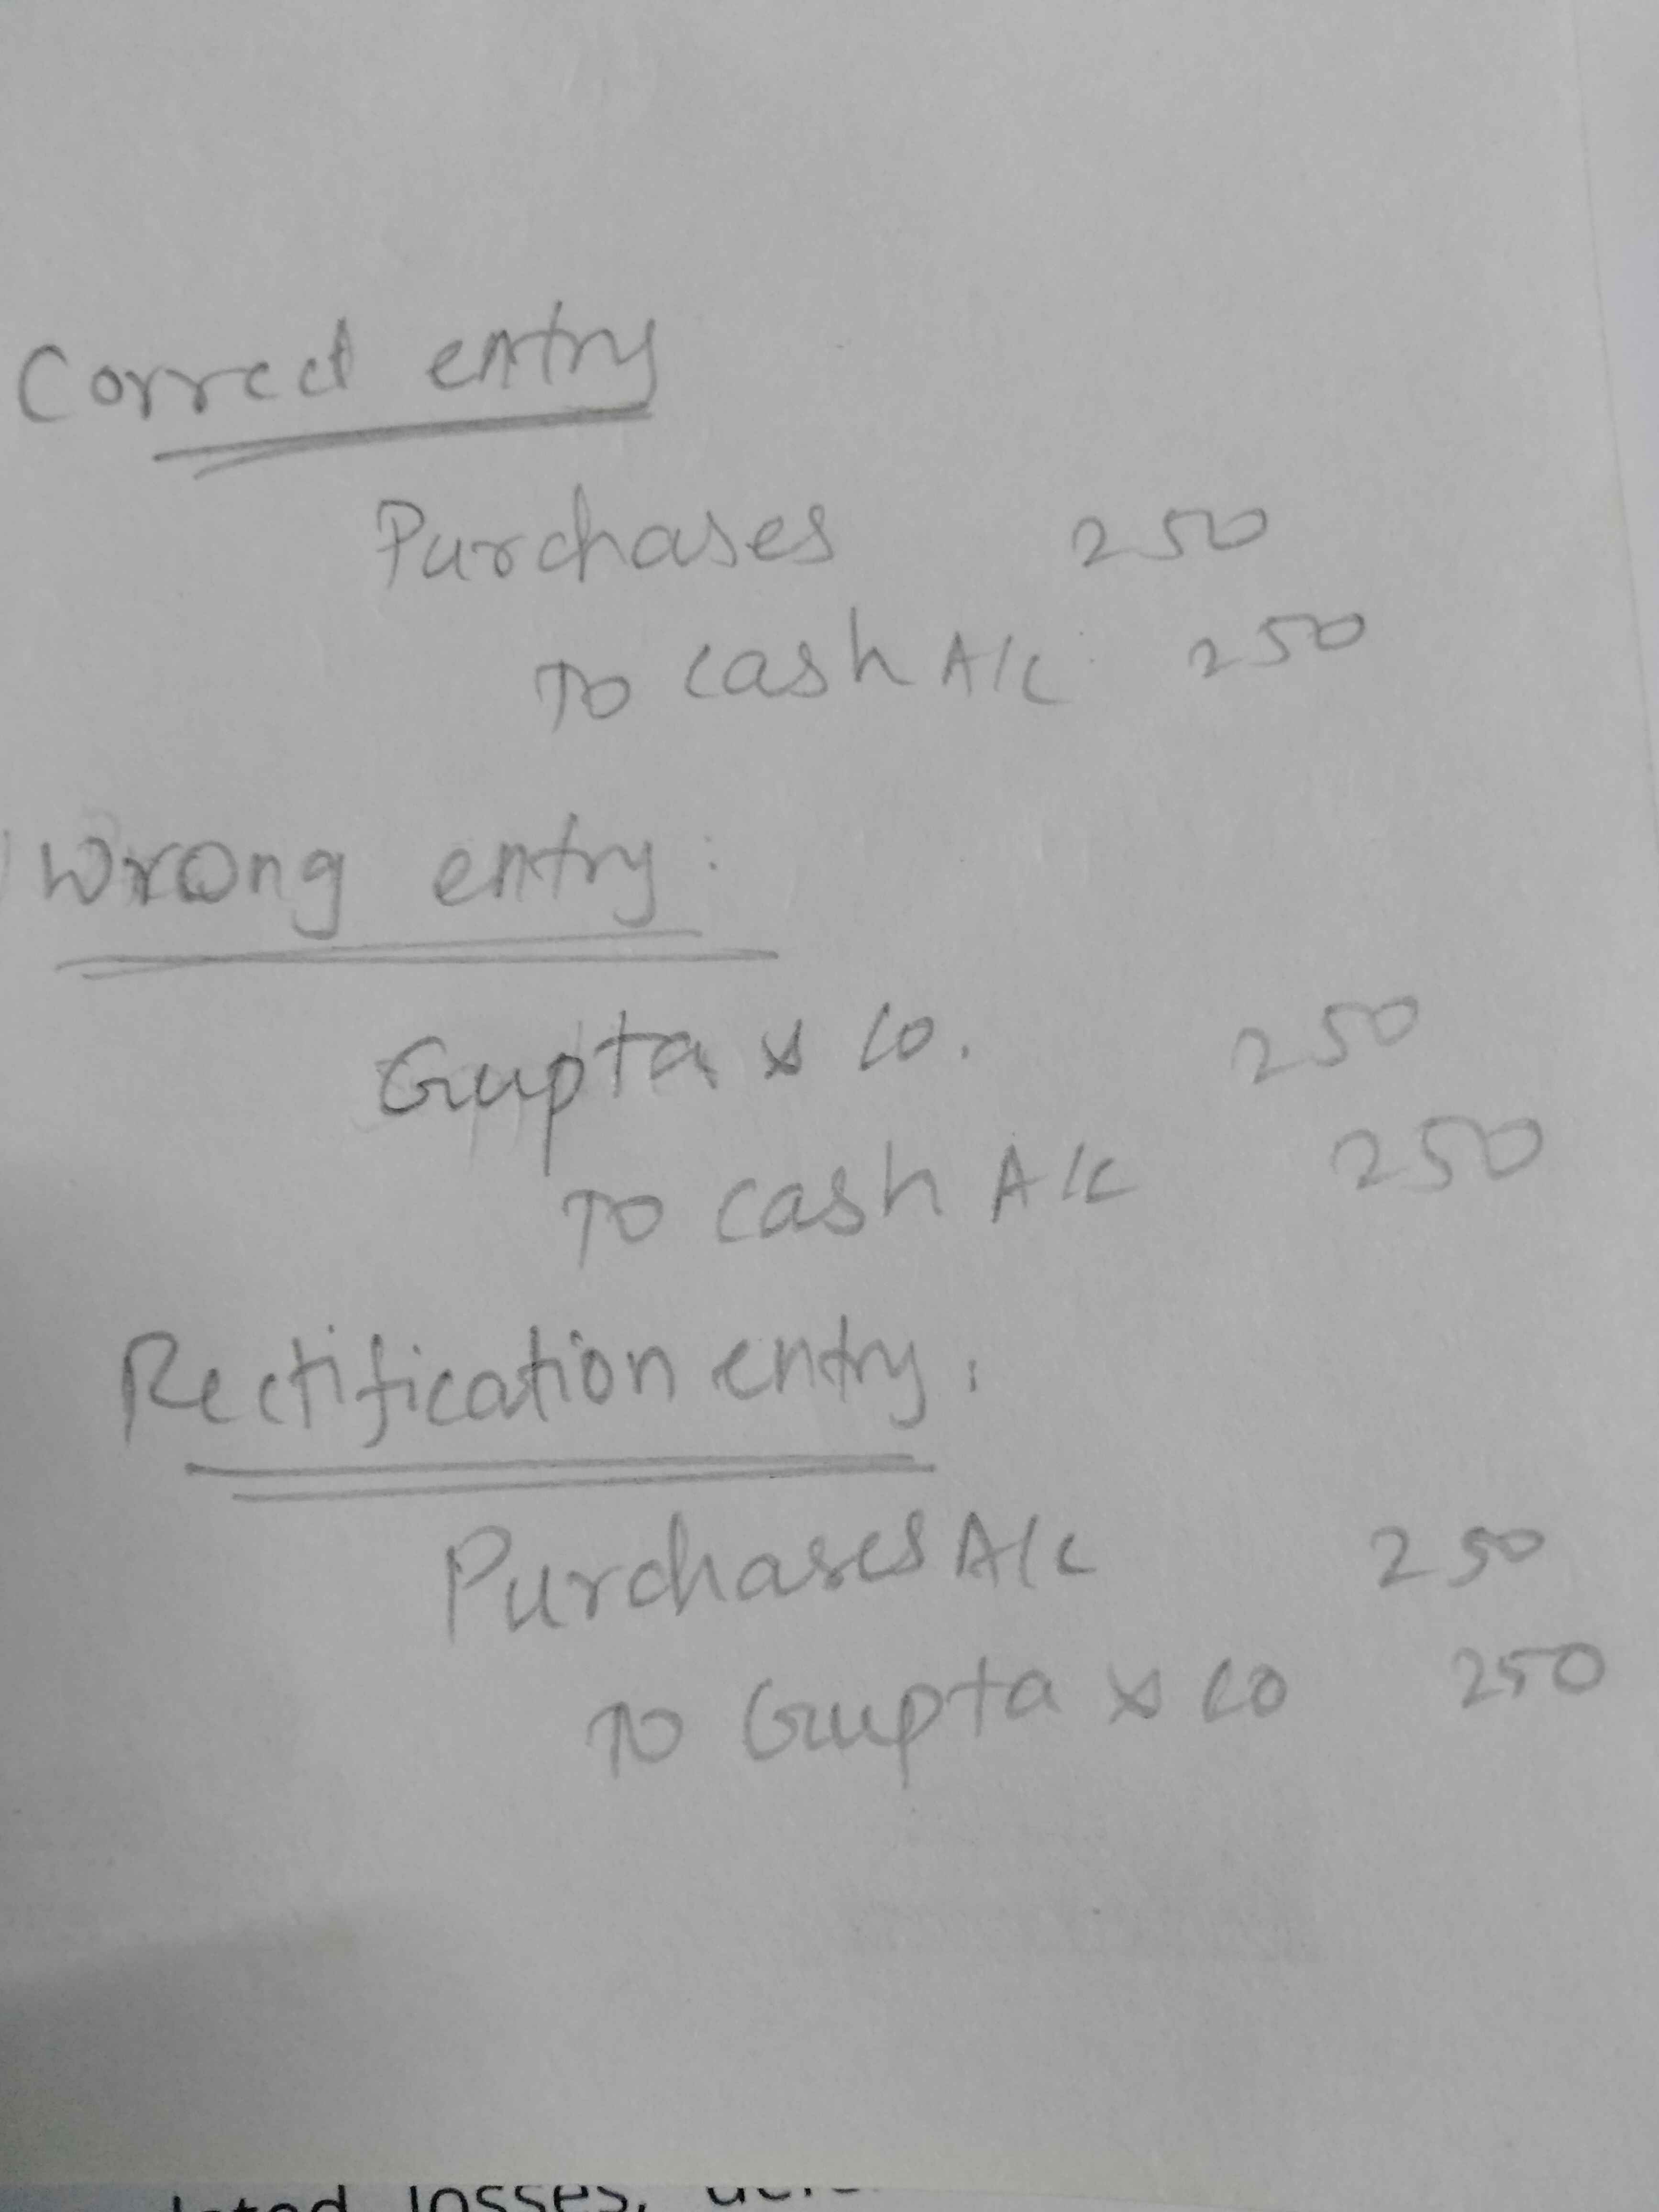 Correct entry
Purchases 250
To cash A/c 250
Wrong entry:
Gupta & Co. 250
To cash A/c 250
Rectification entry.
Purchases A/c 250
To Gupta & Co 250
losses,